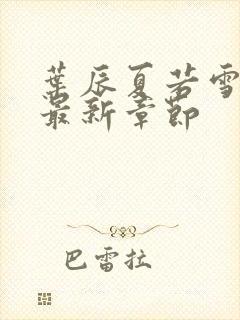 葉辰夏若雪
最新章節
巴雷拉